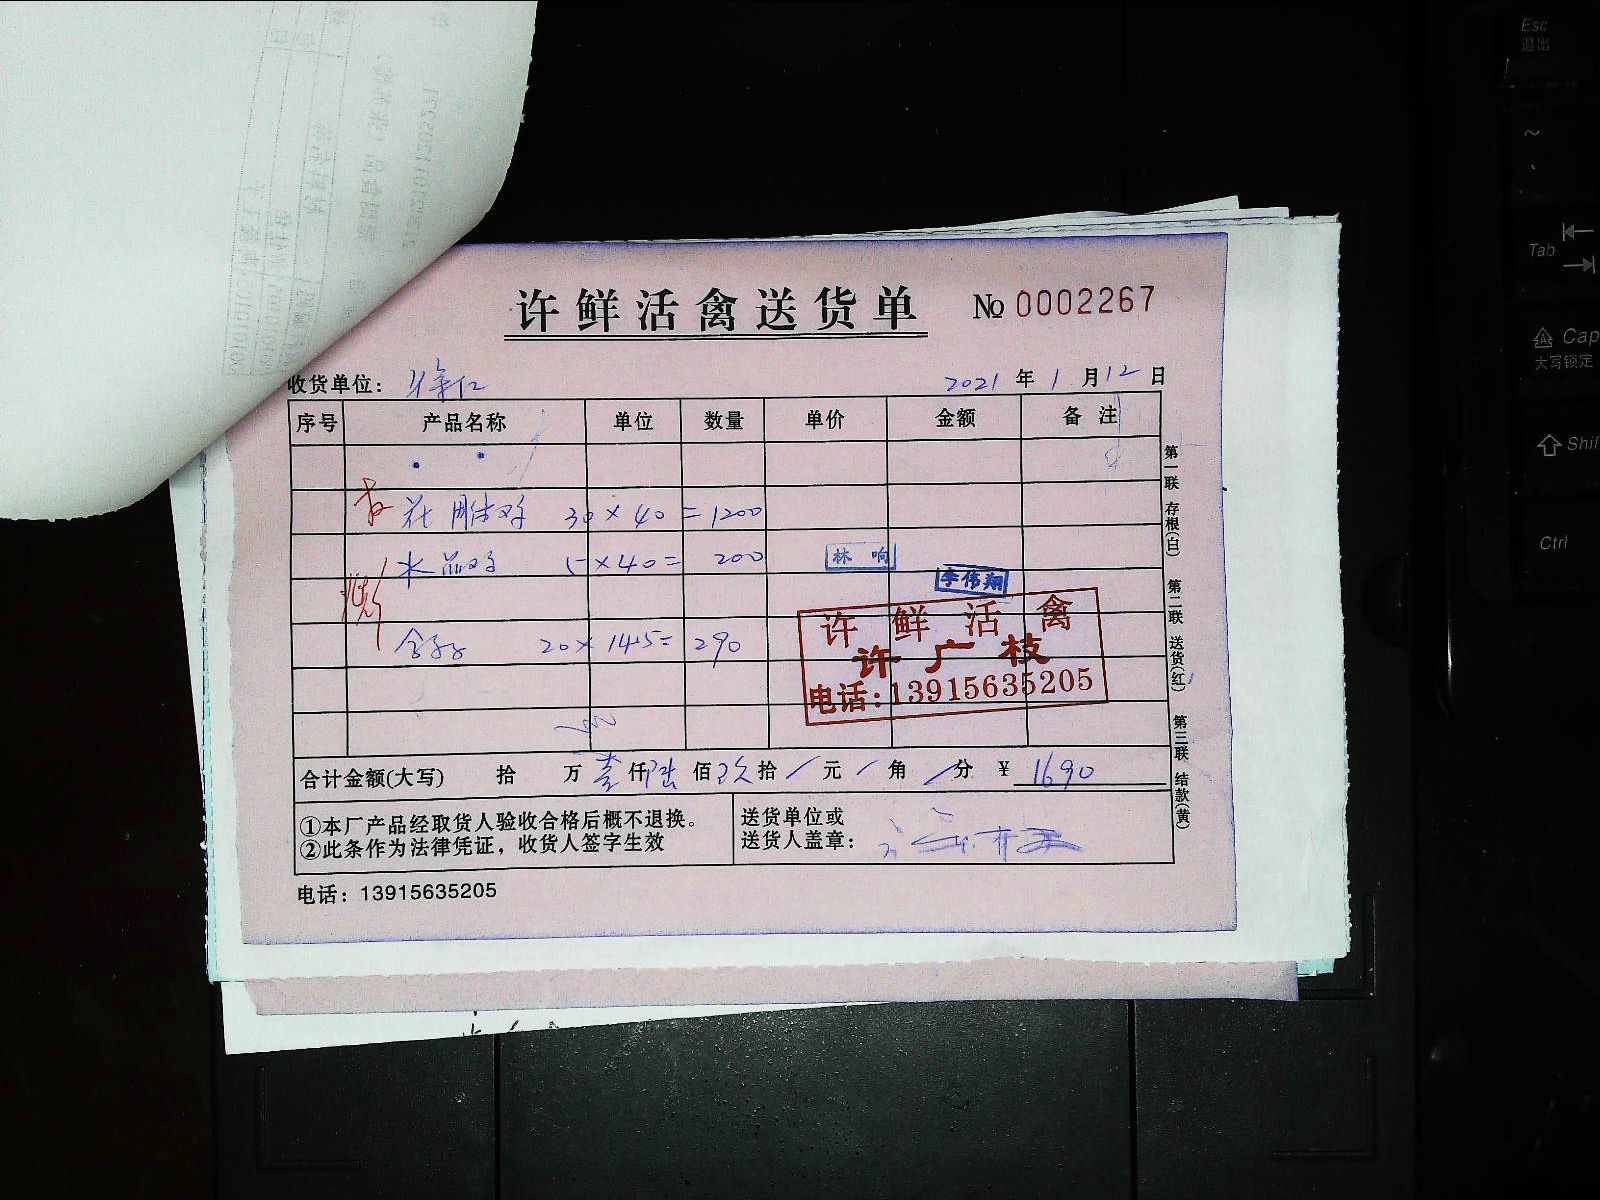 许鲜活禽送货单 № 0002267
收货单位： 徐仁 2021 年 1 月 12 日
序号 产品名称 单位 数量 单价 金额 备注
花雕鸡 30×40=1200
水晶鸡 5×40= 200
林响
李伟翔
20×14.5=290
许鲜活禽
许广枝
电话:13915635205
合计金额(大写) 拾 万 壹 仟 陆 佰 玖 拾 / 元 / 角 / 分 ¥ 1690
①本厂产品经取货人验收合格后概不退换。
②此条作为法律凭证，收货人签字生效
送货单位或
送货人盖章：
电话：13915635205
第一联 存根(白) 第二联 送货(红) 第三联 结款(黄)
Esc
退出
~
Tab
Cap
大写锁定
Shif
Ctrl